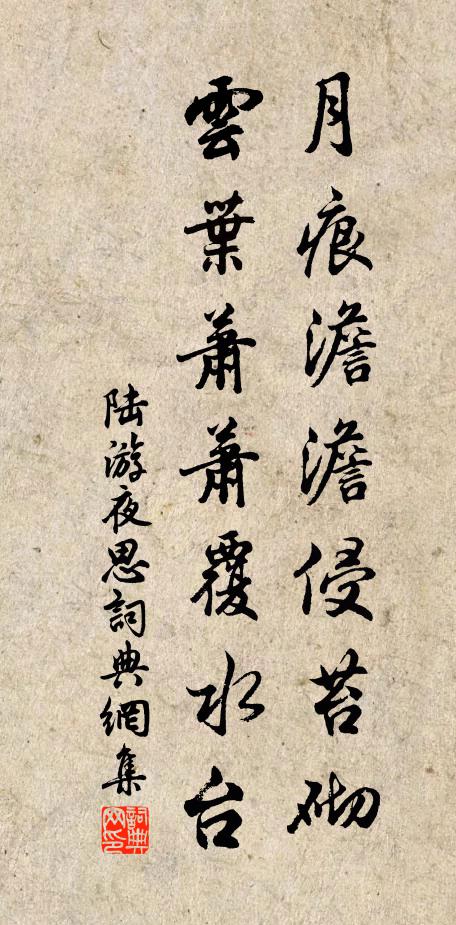 月痕澹澹侵苔砌
雲葉蕭蕭覆水台
陆游夜思詞典網集
詞典网印